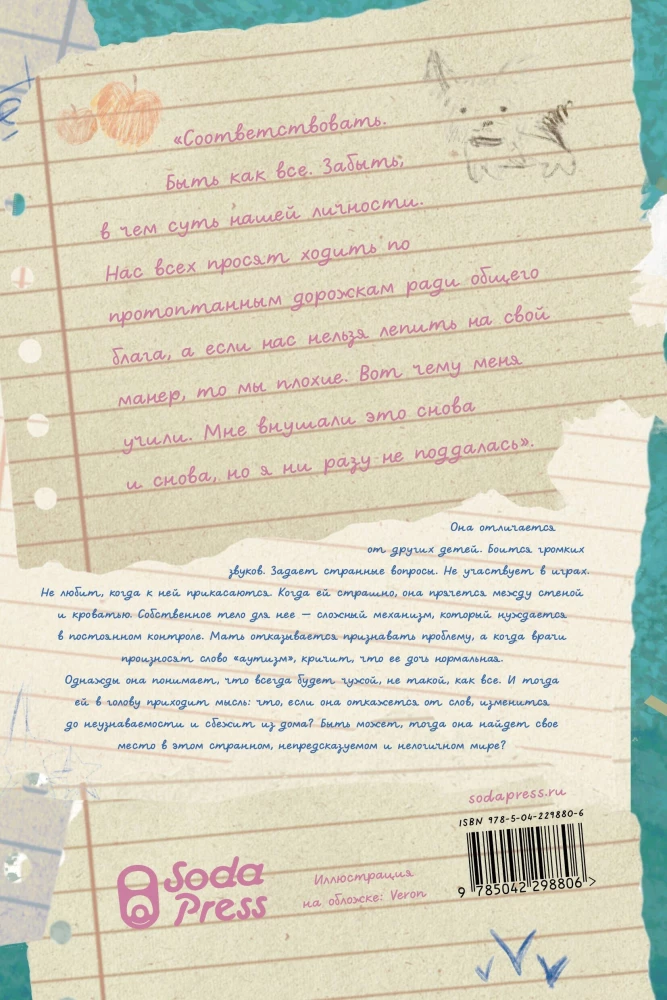 «Соответствовать.
Быть как все. Забыть,
в чем суть нашей личности.
Нас всех просят ходить по
протоптанным дорожкам ради общего
блага, а если нас нельзя лепить на свой
манер, то мы плохие. Вот чему меня
учили. Мне внушали это снова
и снова, но я ни разу не поддалась».
Она отличается
от других детей. Боится громких
звуков. Задает странные вопросы. Не участвует в играх.
Не любит, когда к ней прикасаются. Когда ей страшно, она прячется между стеной
и кроватью. Собственное тело для нее — сложный механизм, который нуждается
в постоянном контроле. Мать отказывается признавать проблему, а когда врачи
произносят слово «аутизм», кричит, что ее дочь нормальная.
Однажды она понимает, что всегда будет чужой, не такой, как все. И тогда
ей в голову приходит мысль: что, если она откажется от слов, изменится
до неузнаваемости и сбежит из дома? Быть может, тогда она найдет свое
место в этом странном, непредсказуемом и нелогичном мире?
sodapress.ru
ISBN 978-5-04-229880-6
9 785042 298806 >
Soda
Press
Иллюстрация
на обложке: Veron